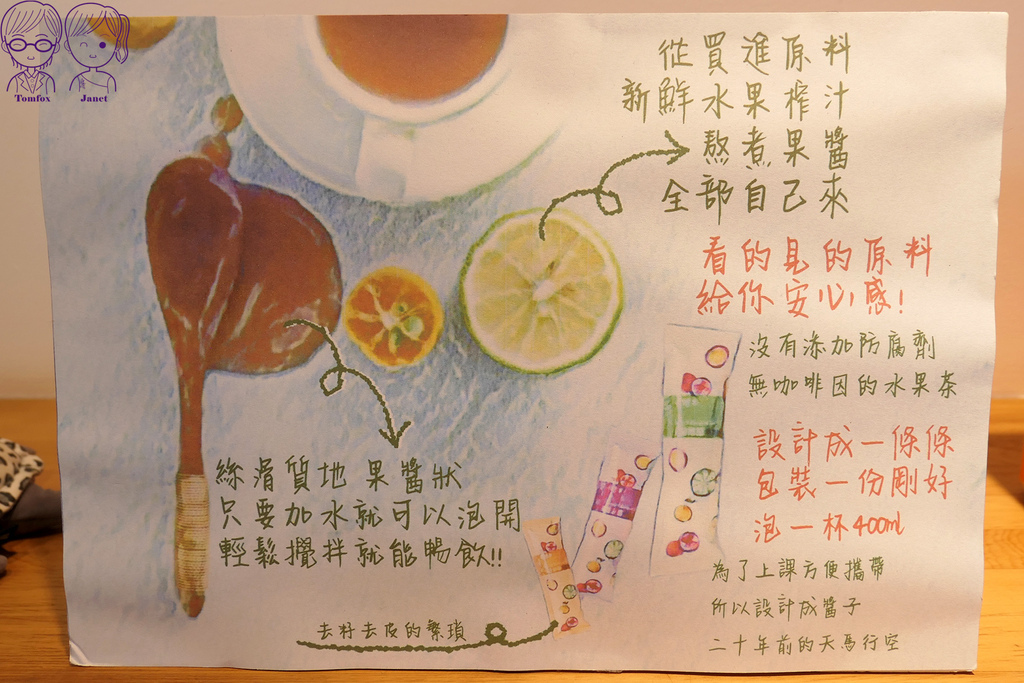 Tomfox Janet
從買進原料
新鮮水果榨汁
熬煮果醬
全部自己來
看的見的原料
給你安心感!
沒有添加防腐劑
無咖啡因的水果茶
設計成一條條
包裝一份剛好
泡一杯400ml
為了上課方便攜帶
所以設計成醬子
二十年前的天馬行空
絲滑質地果醬狀
只要加水就可以泡開
輕鬆攪拌就能暢飲!!
去籽去皮的繁瑣